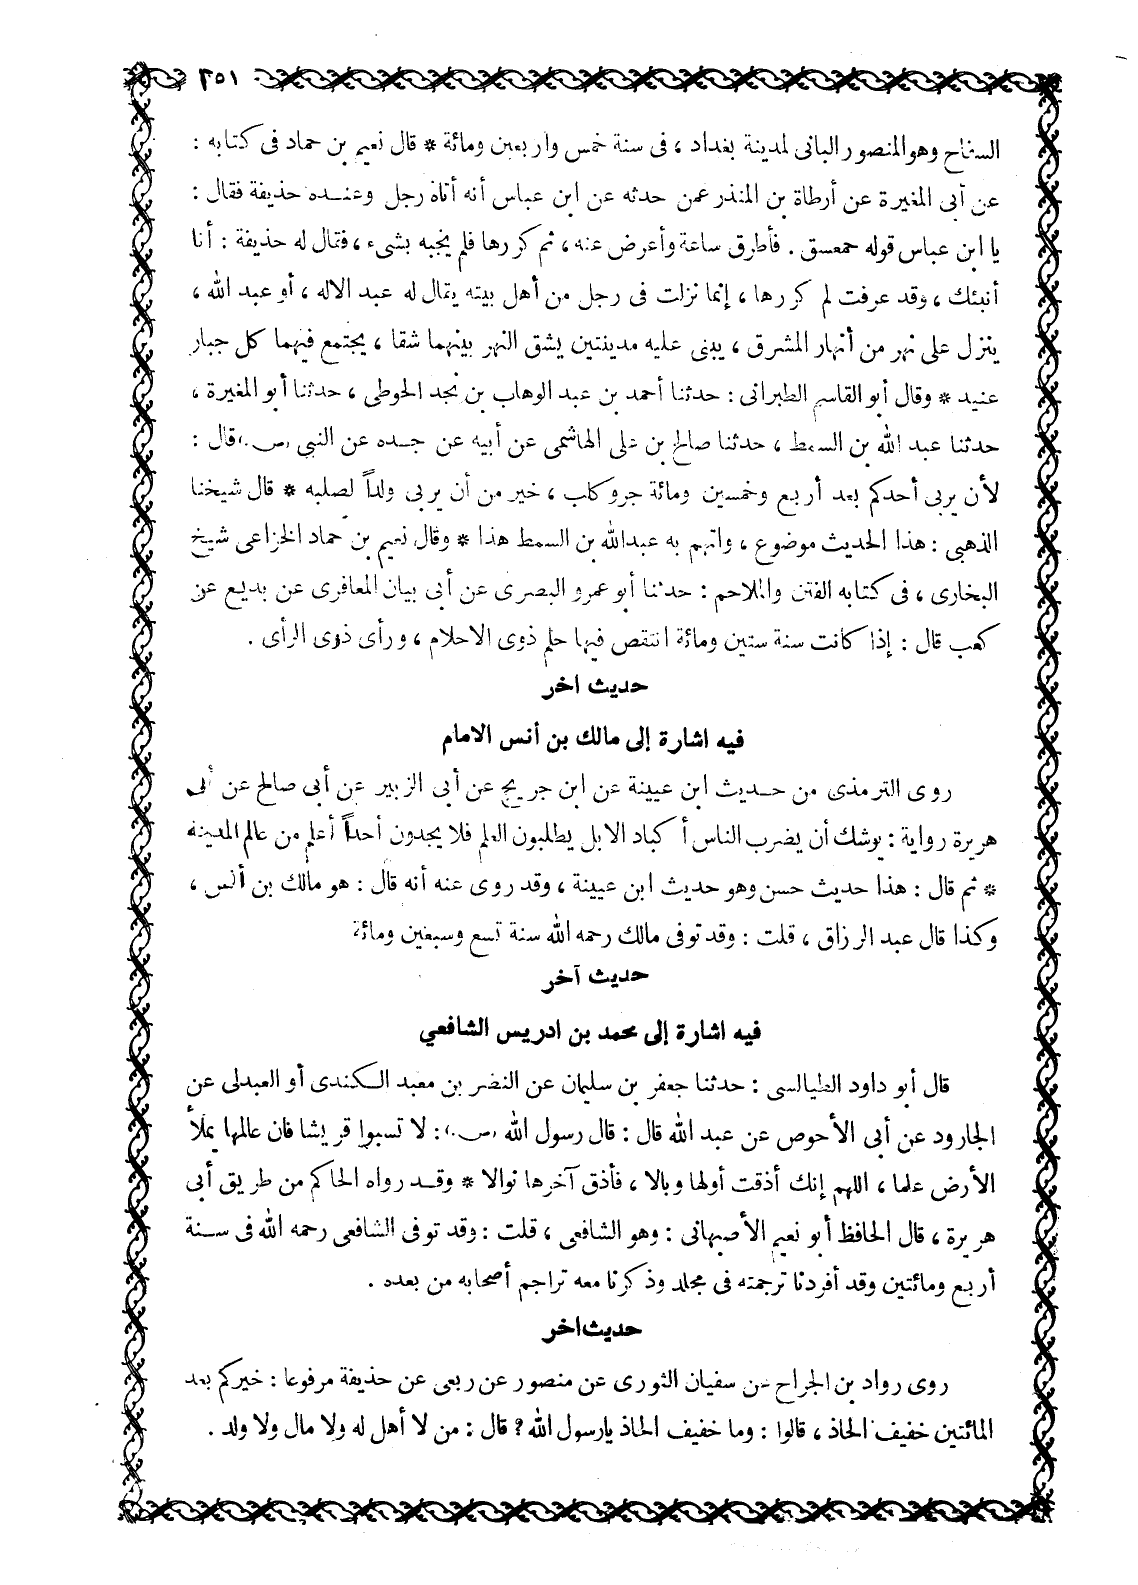 ٢٥١
السفاح وهو المنصور البانى لمدينة بغداد ، فى سنة خمس وأربعين ومائة * قال نعيم بن حماد فى كتابه :
عن أبى المغيرة عن أرطاة بن المنذر عمن حدثه عن ابن عباس أنه أتاه رجل وعنده حذيفة فقال :
يا ابن عباس قوله حمعسق . فأطرق ساعة وأعرض عنه ، ثم كررها فلم يجبه بشىء ، فقال له حذيفة : أنا
أنبئك ، وقد عرفت لم كررها ، إنما نزلت فى رجل من أهل بيته يقال له عبد الاله ، أو عبد الله ،
ينزل على نهر من أنهار المشرق ، يبنى عليه مدينتين يشق النهر بينهما شقا ، يجتمع فيهما كل جبار
عنيد * وقال أبو القاسم الطبرانى : حدثنا أحمد بن عبد الوهاب بن نجد الحوطى ، حدثنا أبو المغيرة ،
حدثنا عبد الله بن السمط ، حدثنا صالح بن على الهاشمى عن أبيه عن جده عن النبى (ص.) قال :
لأن يربى أحدكم بعد أربع وخمسين ومائة جرو كلب ، خير من أن يربى ولداً لصلبه * قال شيخنا
الذهبى : هذا الحديث موضوع ، واتهم به عبدالله بن السمط هذا * وقال نعيم بن حماد الخزاعى شيخ
البخارى ، فى كتابه الفتن والملاحم : حدثنا أبو عمرو البصرى عن أبى بيان المعافرى عن بديع عن
كعب قال : إذا كانت سنة ستين ومائة انتقص فيها حلم ذوى الاحلام ، ورأى ذوى الرأى .
حديث اخر
فيه اشارة إلى مالك بن أنس الامام
روى الترمذى من حديث ابن عيينة عن ابن جريج عن أبى الزبير عن أبى صالح عن أبى
هريرة رواية : يوشك أن يضرب الناس أكباد الابل يطلبون العلم فلا يجدون أحداً أعلم من عالم المدينة
* ثم قال : هذا حديث حسن وهو حديث ابن عيينة ، وقد روى عنه أنه قال : هو مالك بن أنس ،
وكذا قال عبد الرزاق ، قلت : وقد توفى مالك رحمه الله سنة تسع وسبعين ومائة
حديث آخر
فيه اشارة إلى محمد بن ادريس الشافعي
قال أبو داود الطيالسى : حدثنا جعفر بن سليمان عن النضر بن معبد الكندى أو العبدلى عن
الجارود عن أبى الأحوص عن عبد الله قال : قال رسول الله (ص.) : لا تسبوا قريشا فان عالمها يملأ
الأرض علما ، اللهم إنك أذقت أولها وبالا ، فأذق آخرها نوالا * وقد رواه الحاكم من طريق أبى
هريرة ، قال الحافظ أبو نعيم الأصبهانى : وهو الشافعى ، قلت : وقد توفى الشافعى رحمه الله فى سنة
أربع ومائتين وقد أفردنا ترجمته فى مجلد وذكرنا معه تراجم أصحابه من بعده .
حديث اخر
روى رواد بن الجراح عن سفيان الثورى عن منصور عن ربعى عن حذيفة مرفوعا : خيركم بعد
المائتين خفيف الحاذ ، قالوا : وما خفيف الحاذ يارسول الله ? قال : من لا أهل له ولا مال ولا ولد .